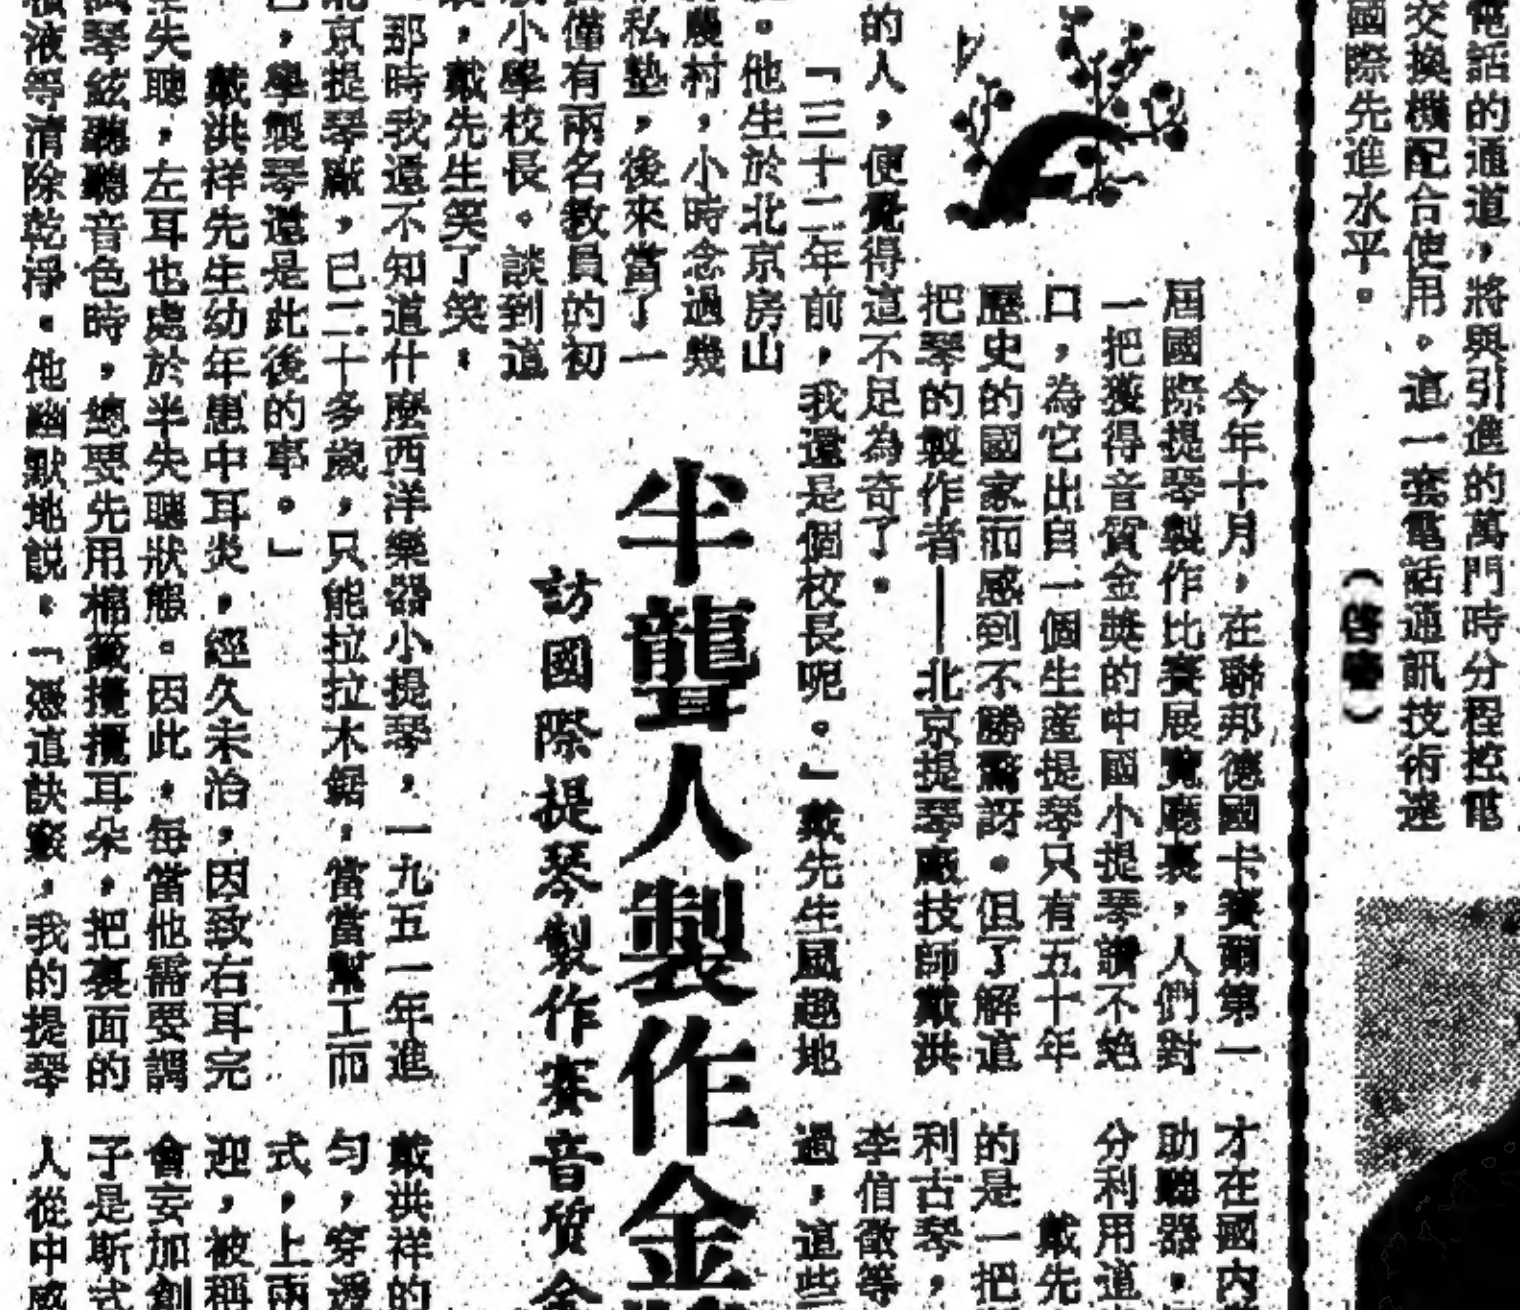 電話的通道，將與引進的萬門時分程控電
交換機配合使用。這一套電話通訊技術達
國際先進水平。
半聾人製作金
訪國際提琴製作賽音質金
今年十月，在聯邦德國卡賽爾第一
屆國際提琴製作比賽展覽廳裏，人們對
一把獲得音質金獎的中國小提琴讚不絶
口，為它出自一個生産提琴只有五十年
歷史的國家而感到不勝驚訝。但了解這
把琴的製作者——北京提琴廠技師戴洪
的人，便覺得這不足為奇了。
「三十二年前，我還是個校長呢。」戴先生風趣地
。他生於北京房山
農村，小時念過幾
私塾，後來當了一
僅有兩名教員的初
小學校長。談到這
，戴先生笑了笑，
那時我還不知道什麽西洋樂器小提琴，一九五一年進
北京提琴廠，已二十多歲，只能拉拉木鋸，當當幫工而
已，學製琴還是此後的事。」
戴洪祥先生幼年患中耳炎，經久未治，因致右耳完
全失聰，左耳也處於半失聰狀態。因此，每當他需要調
試琴絃聽聽音色時，總要先用棉籤攪攪耳朵，把裏面的
積液等清除乾淨。他幽默地説，「憑這訣竅，我的提琴
才在國內
助聽器，
分利用這
戴先
的是一把
利古琴，
李伯徵等
過，這些
戴洪祥的
勻，穿透
式，上兩
迎，被稱
會妄加創
子是斯式
人從中感